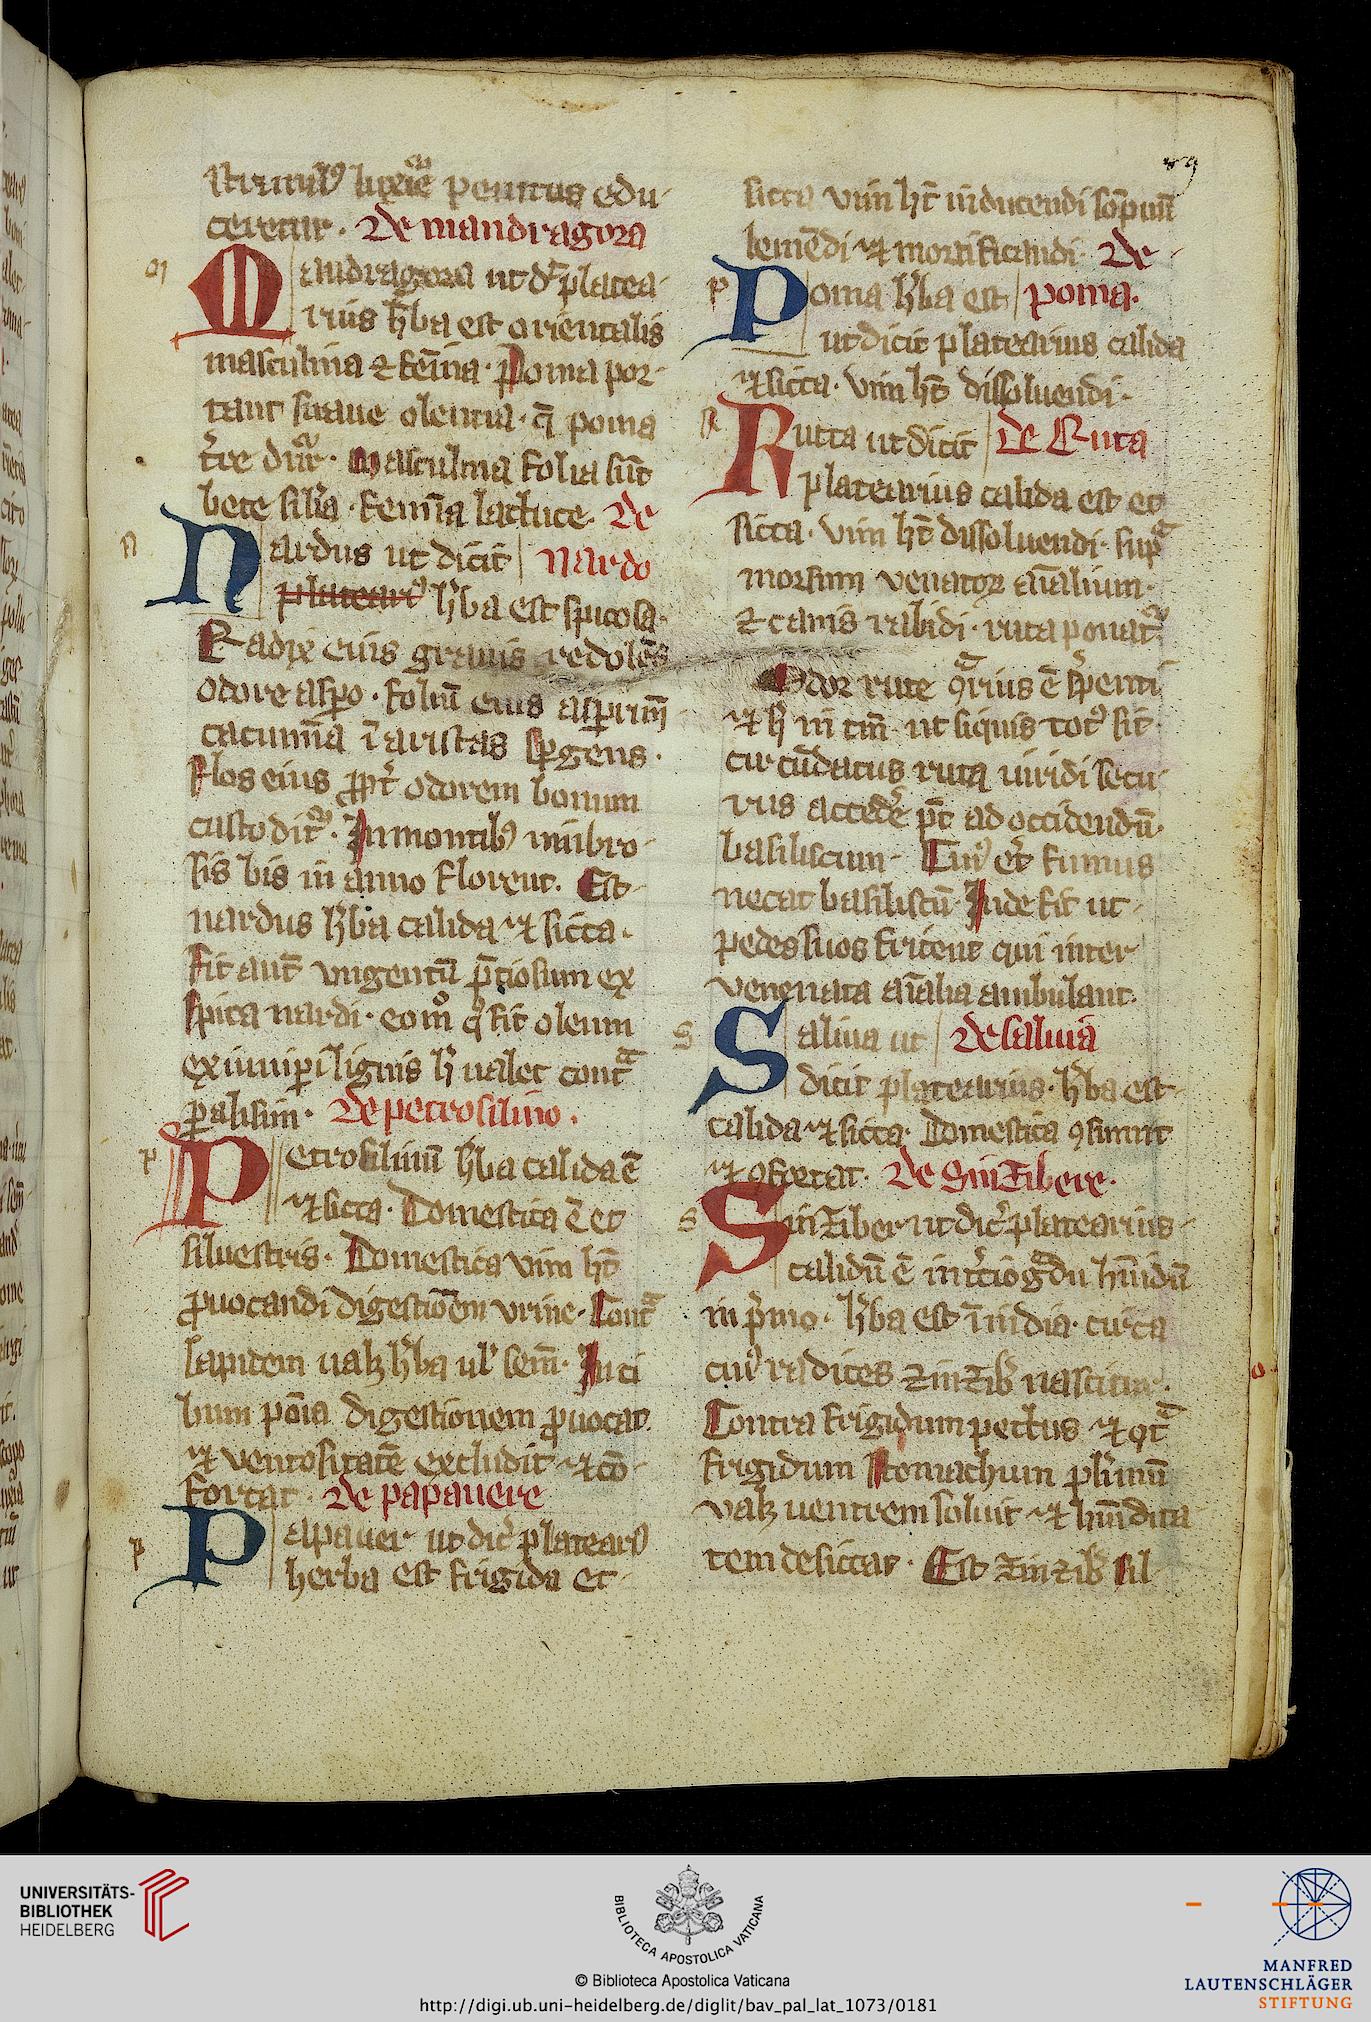 penitus edu-
ceretur. De mandragora
Mandragora ut dr̄ platea-
rius hͬba est orientalis
masculina ⁊ fem̄ina. Poma por-
tant suaue olentia. q̄ poma
tͬre dn̄r. Masculina folia sūt
bete silia. femīa lactuce. De
N
Nardus ut dicit nardo
plateariꝰ hͬba est spicosa.
Radix eius grauis redolēs
odore aspo. foliū eius
cacumīa ī aristas spgens.
flos eius ꝓpͭ odorem bonum
custoditͬ. In montibꝰ
bis in anno florent. Est
nardus hͬba calida ⁊ sicca.
fit aut̄ vngentū p̄ciosum ex
spica nardi. eom̊ q̊ fit oleum
ex iunipi lignis hͬ ualet contͣ
palisim. De petrosilino.
p
Petrosilinū hͬba calida ē
⁊ sicca. Domestica ē et
siluestris. Domestica vim hͭ
ꝓuocandi digestionem vrine. Contͣ
lapidem ualꝫ hͬba ul̓ sem̄. In ci
bum poīa digestionem ꝓuocat.
⁊ ventositatē excludit ⁊ cō-
fortat. De papauere
p
Papauer ut dic̓ platearꝰ
herba est frigida et
sicca vim hͭ inducendi sompnū
leniēdi ⁊ mortificandi. De
p
Poma hͬba est poma.
ut dicit platearius calida
⁊ sicca. vim hͭ dissoluendi.
R
Rutta ut dicit de Ruta
platearius calida est et
sicca. vim hͭ dissoluendi. supͣ
morsum venatoꝝ aīalium.
⁊ canis rabidi. ruta ponatͬ.
Odor rute ꝯͣrius ē spenti
⁊ hͦ in tm̄. ut siquis totꝰ sit
circūdatus ruta uiridi secu-
rus accedͤe pͭ ad occidendū
basiliscum. Cuiꝰ et̓ fumus
necat basiliscū. Inde fit ut
pedes suos fricent qui inter
venenata aīalia ambulant.
S
Saluia ut de saluia
dicit platearius. hͬba est
calida ⁊ sicca. Domestica ꝯsumit
⁊ ꝯfortat. De Sinzibere.
S
Sinziber ut dic̓ platearius
calidū ē in tͬcio gͣdu hūidū
in pͥmo. hͬba est in india. circa
cuiꝰ radices zinzib̓ nascitur.
Contra frigidum pectus ⁊ ꝯtͣ
frigidum stomachum plīmū
valꝫ uentrem soluit ⁊ hūidita
tem desiccat. Est zinzib̓ sil-
UNIVERSITÄTS-
BIBLIOTHEK
HEIDELBERG
BIBLIOTECA APOSTOLICA VATICANA
© Biblioteca Apostolica Vaticana
http://digi.ub.uni-heidelberg.de/diglit/bav_pal_lat_1073/0181
MANFRED
LAUTENSCHLÄGER
STIFTUNG